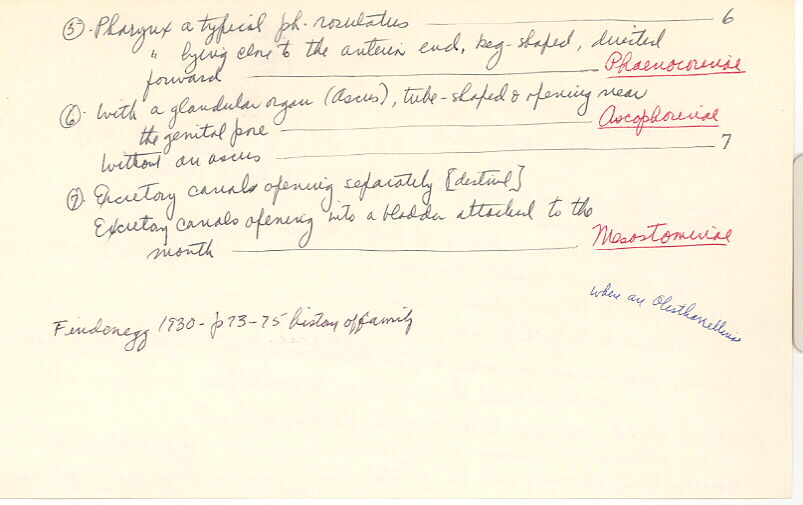 ⑤ Pharynx a typical ph. rosulatus 6
" lying close to the anterior end, keg-shaped, directed
forward Phaenocorinae
⑥ With a glandular organ (Ascus), tube-shaped & opening near
the genital pore Ascophorinae
Without an ascus 7
⑦ Excretory canals opening separately
Excretory canals opening into a bladder attached to the
mouth Mesostominae
where are Olisthanellinae
Findenegg 1930 - p73-75 history of family